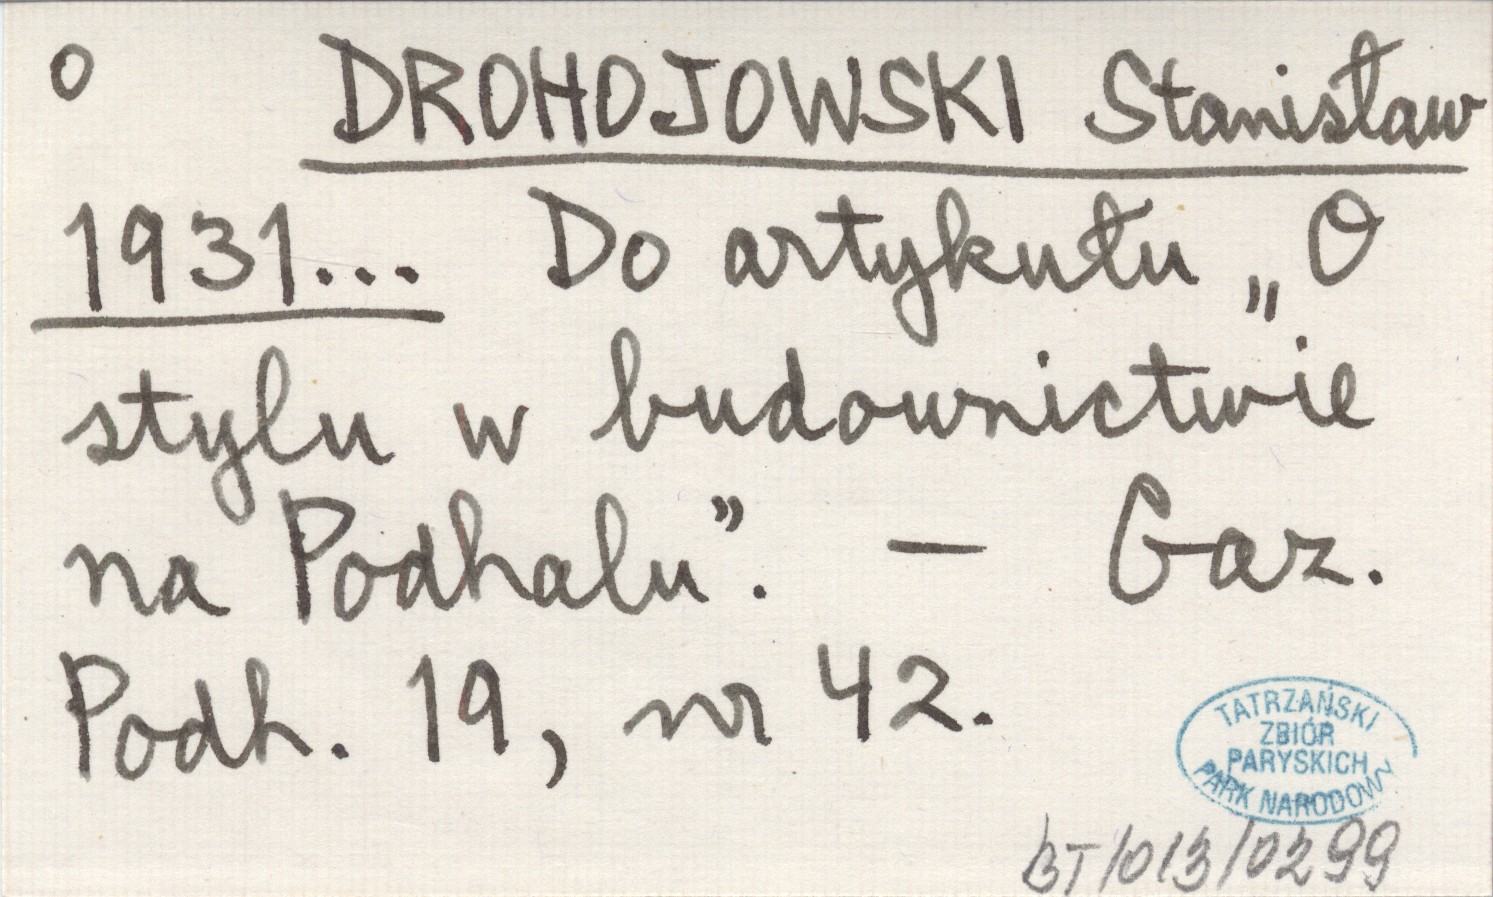 o DROHOJOWSKI Stanisław
1931... Do artykułu „O
stylu w budownictwie
na Podhalu”. — Gaz.
Podh. 19, nr 42.
TATRZAŃSKI
ZBIÓR
PARYSKICH
PARK NARODOWY
BT/013/0299